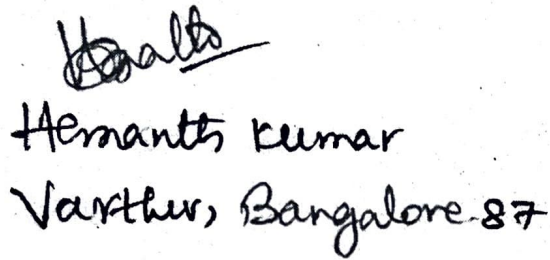 Hemanth Kumar
Varthur, Bangalore-87